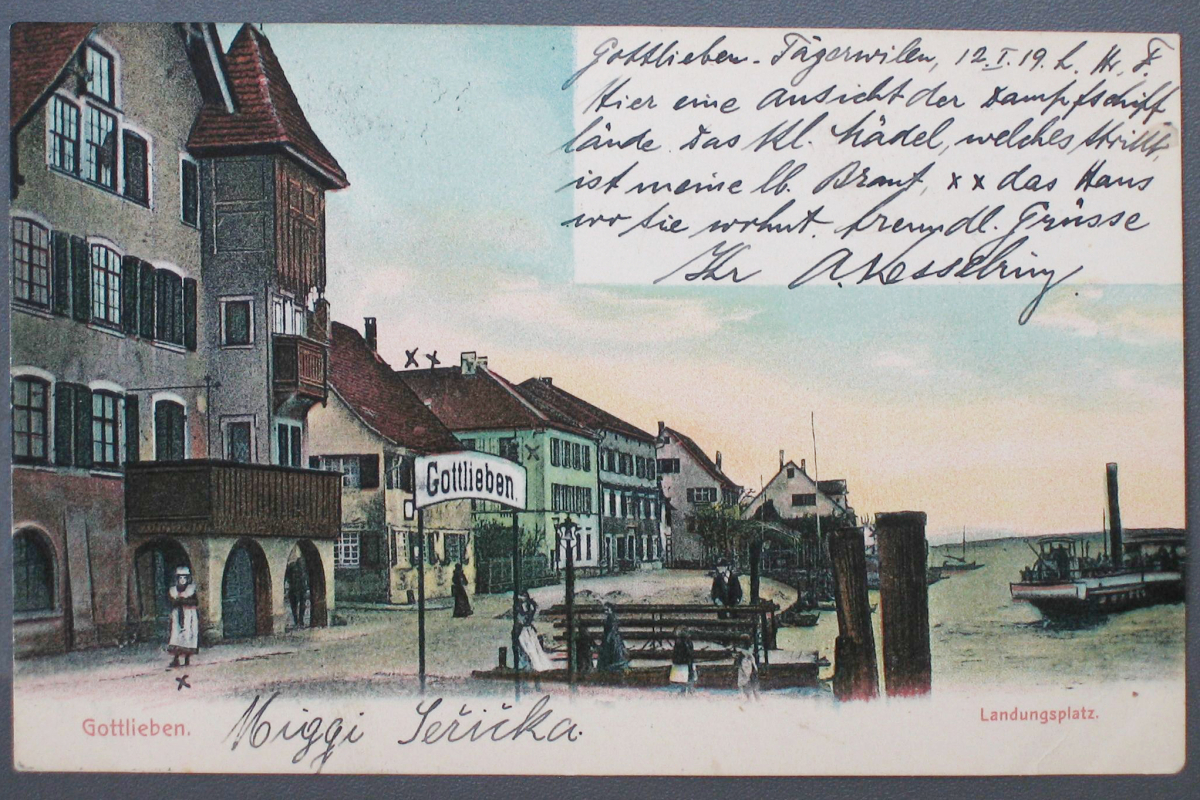 Gottlieben-Tägerwilen, 12.I.19. L. Hr. F.
Hier eine Ansicht der Dampfschiff
lände. Das Kl. Mädel, welches strickt,
ist meine lb. Braut, x x das Haus
wo sie wohnt. freundl. Grüsse
Ihr A. Kesselring.
x x
x
Gottlieben.
x
Gottlieben.
Miggi Seřička.
Landungsplatz.